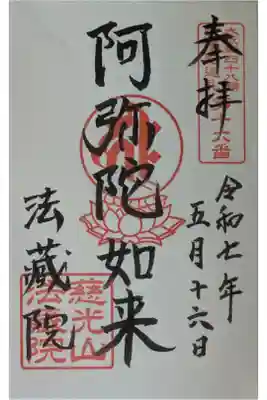 奉拝
令和七年
五月十六日
阿弥陀如来
法蔵院
慈光山
法蔵院